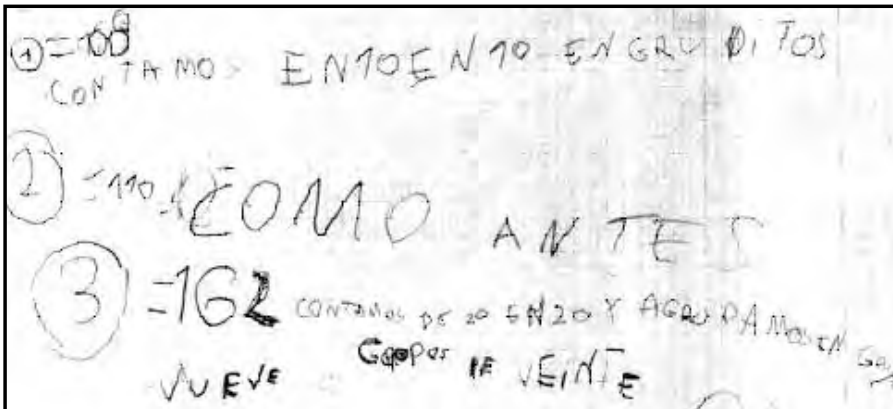 ① = 108
CONTAMOS EN 10 EN 10 EN GRUPITOS
② = 110 COMO ANTES
③ = 162 CONTAMOS DE 20 EN 20 Y AGRUPAMOS EN
NUEVE GRUPOS DE VEINTE